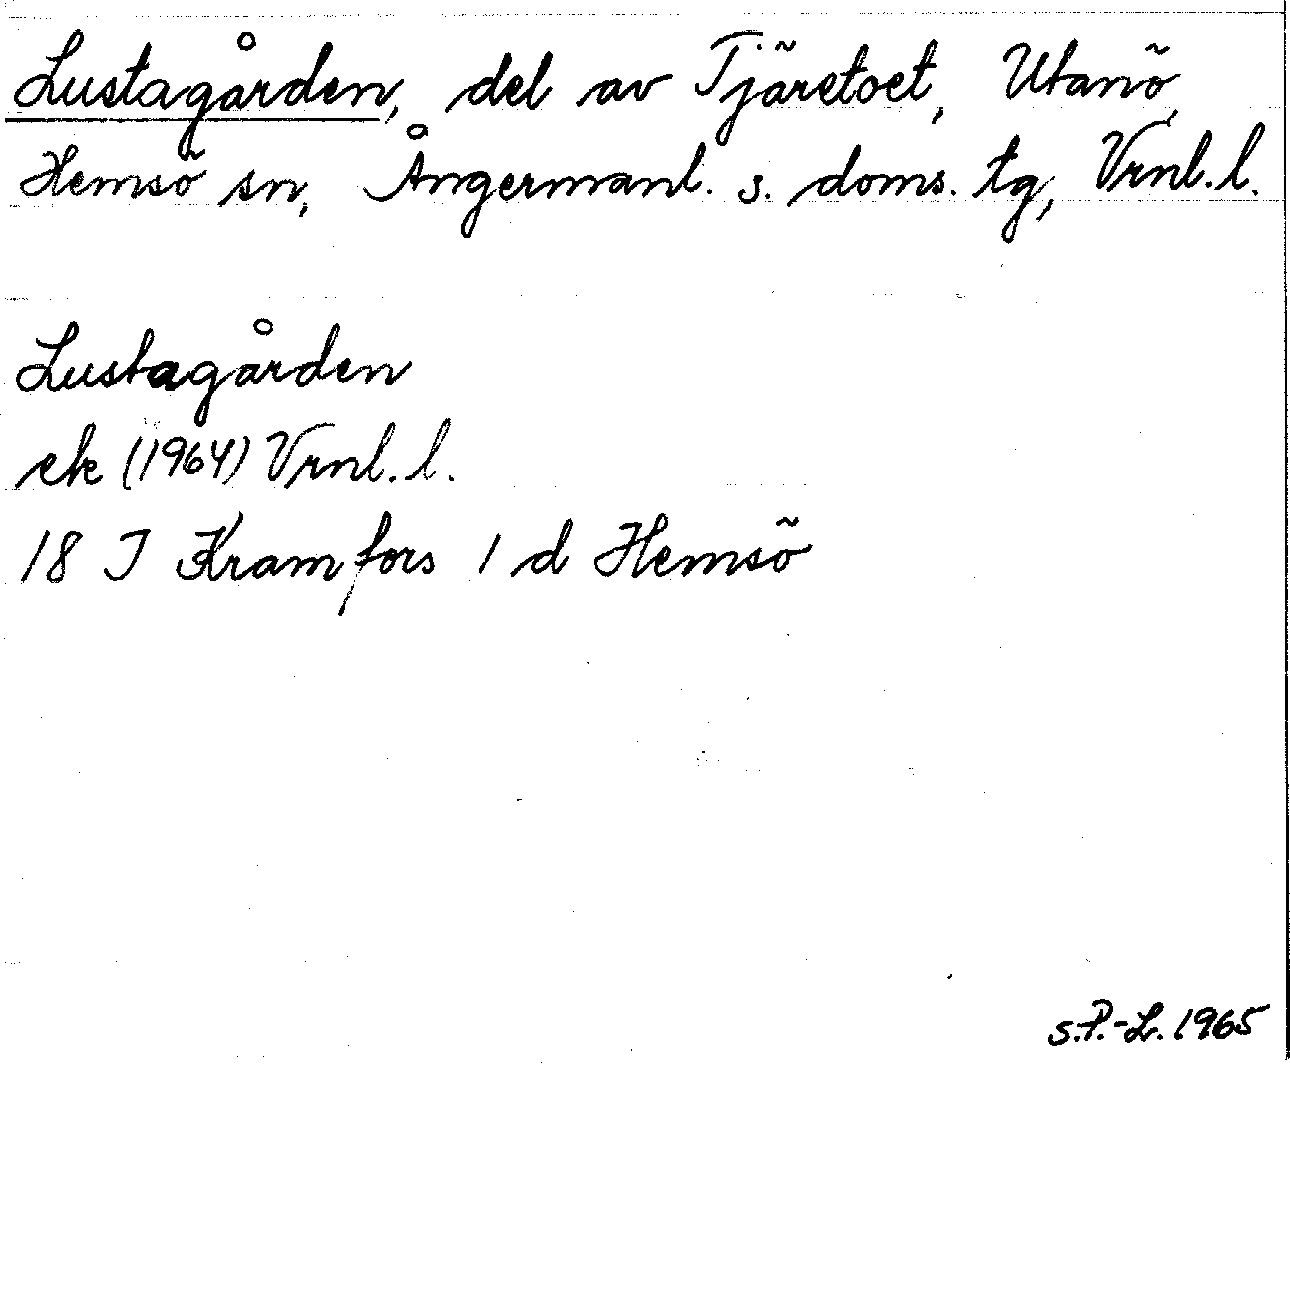 Lustagården, del av Tjäretoet, Utanö,
Hemsö sn, Ångermanl. s. doms. tg, Vrnl. l.
Lustagården
ek (1964) Vrnl. l.
18 I Kramfors 1 d Hemsö
S.P.-L. 1965